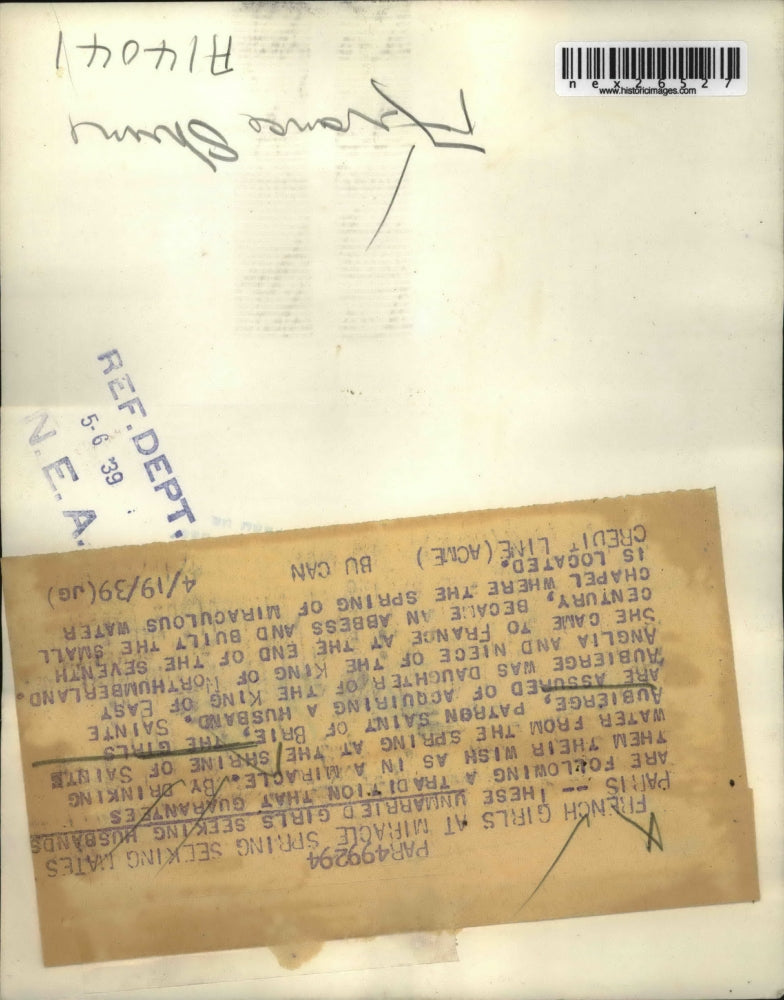 A14041
France Shrines
nex26527
www.historicimages.com
REF. DEPT.
5-6 39
N.E.A.
PAR499294
FRENCH GIRLS AT MIRACLE SPRING SEEKING MATES
PARIS -- THESE UNMARRIED GIRLS SEEKING HUSBANDS
ARE FOLLOWING A TRADITION THAT GUARANTEES
THEM THEIR WISH AS IN A MIRACLE. BY DRINKING
WATER FROM THE SPRING AT THE SHRINE OF SAINTE
AUBIERGE, PATRON SAINT OF BRIE, THE GIRLS
ARE ASSURED OF ACQUIRING A HUSBAND. SAINTE
AUBIERGE WAS DAUGHTER OF THE KING OF EAST
ANGLIA AND NIECE OF THE KING OF NORTHUMBERLAND.
SHE CAME TO FRANCE AT THE END OF THE SEVENTH
CENTURY, BECAME AN ABBESS AND BUILT THE SMALL
CHAPEL WHERE THE SPRING OF MIRACULOUS WATER
IS LOCATED.
CREDIT LINE (ACME) BU CAN 4/19/39(JG)